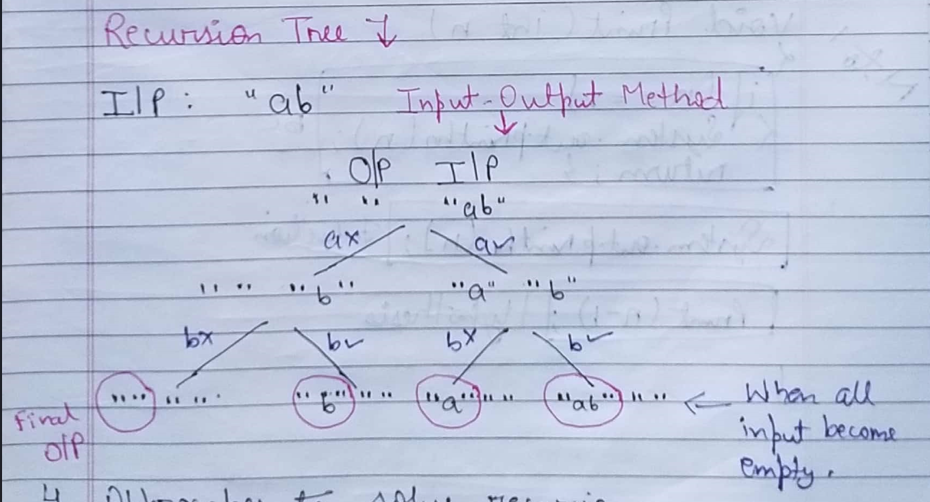 Recursion Tree ↓
I/P : "ab" Input-Output Method
↓
O/P I/P
" " "ab"
a× a✓
" " "b" "a" "b"
b× b✓ b× b✓
" " " " "b" " " "a" " " "ab" " " ← When all
Final input become
O/P empty.